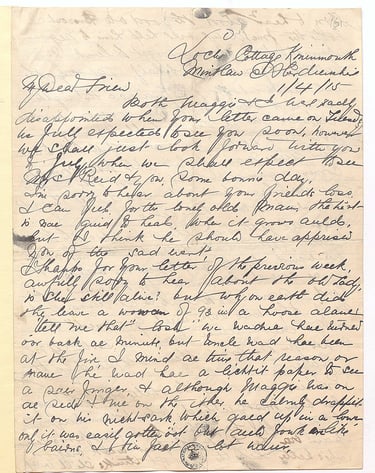 Loch Cottage Kininmonth
Mintlaw
1/4/15
My Dear Friend
Both Maggie & I were sadly
disappointed when your letter came on
as I full expected to see you soon, however
we shall just look forward with you
to July when we shall expect to see
Mrs Reid & you some bonnie day.
I'm sorry to hear about your friends loss,
I can feel for the lonely
is nae guid to heal when it grows auld,
but I think he should have apprised
you of the sad event.
Thanks for your letter of the previous week
awfull sorry to hear about the old lady,
is she still alive? but why on earth did
she leave a woman of 93 in a hoose alane
"tell me that" Coan we wadna hae turned
oor back ae minute, but uncle wad hae been
at the fire I mind ae time that reason or
nane he wad hae a lichtit paper to see
a sair finger, & although Maggie was on
ae side & me on the ither, he calmly drappit
it on his nichtsark which gaed up in a lowe
only it was easil gotten oot but auld fouk are like
bairns, & I'm jist a lot waur.